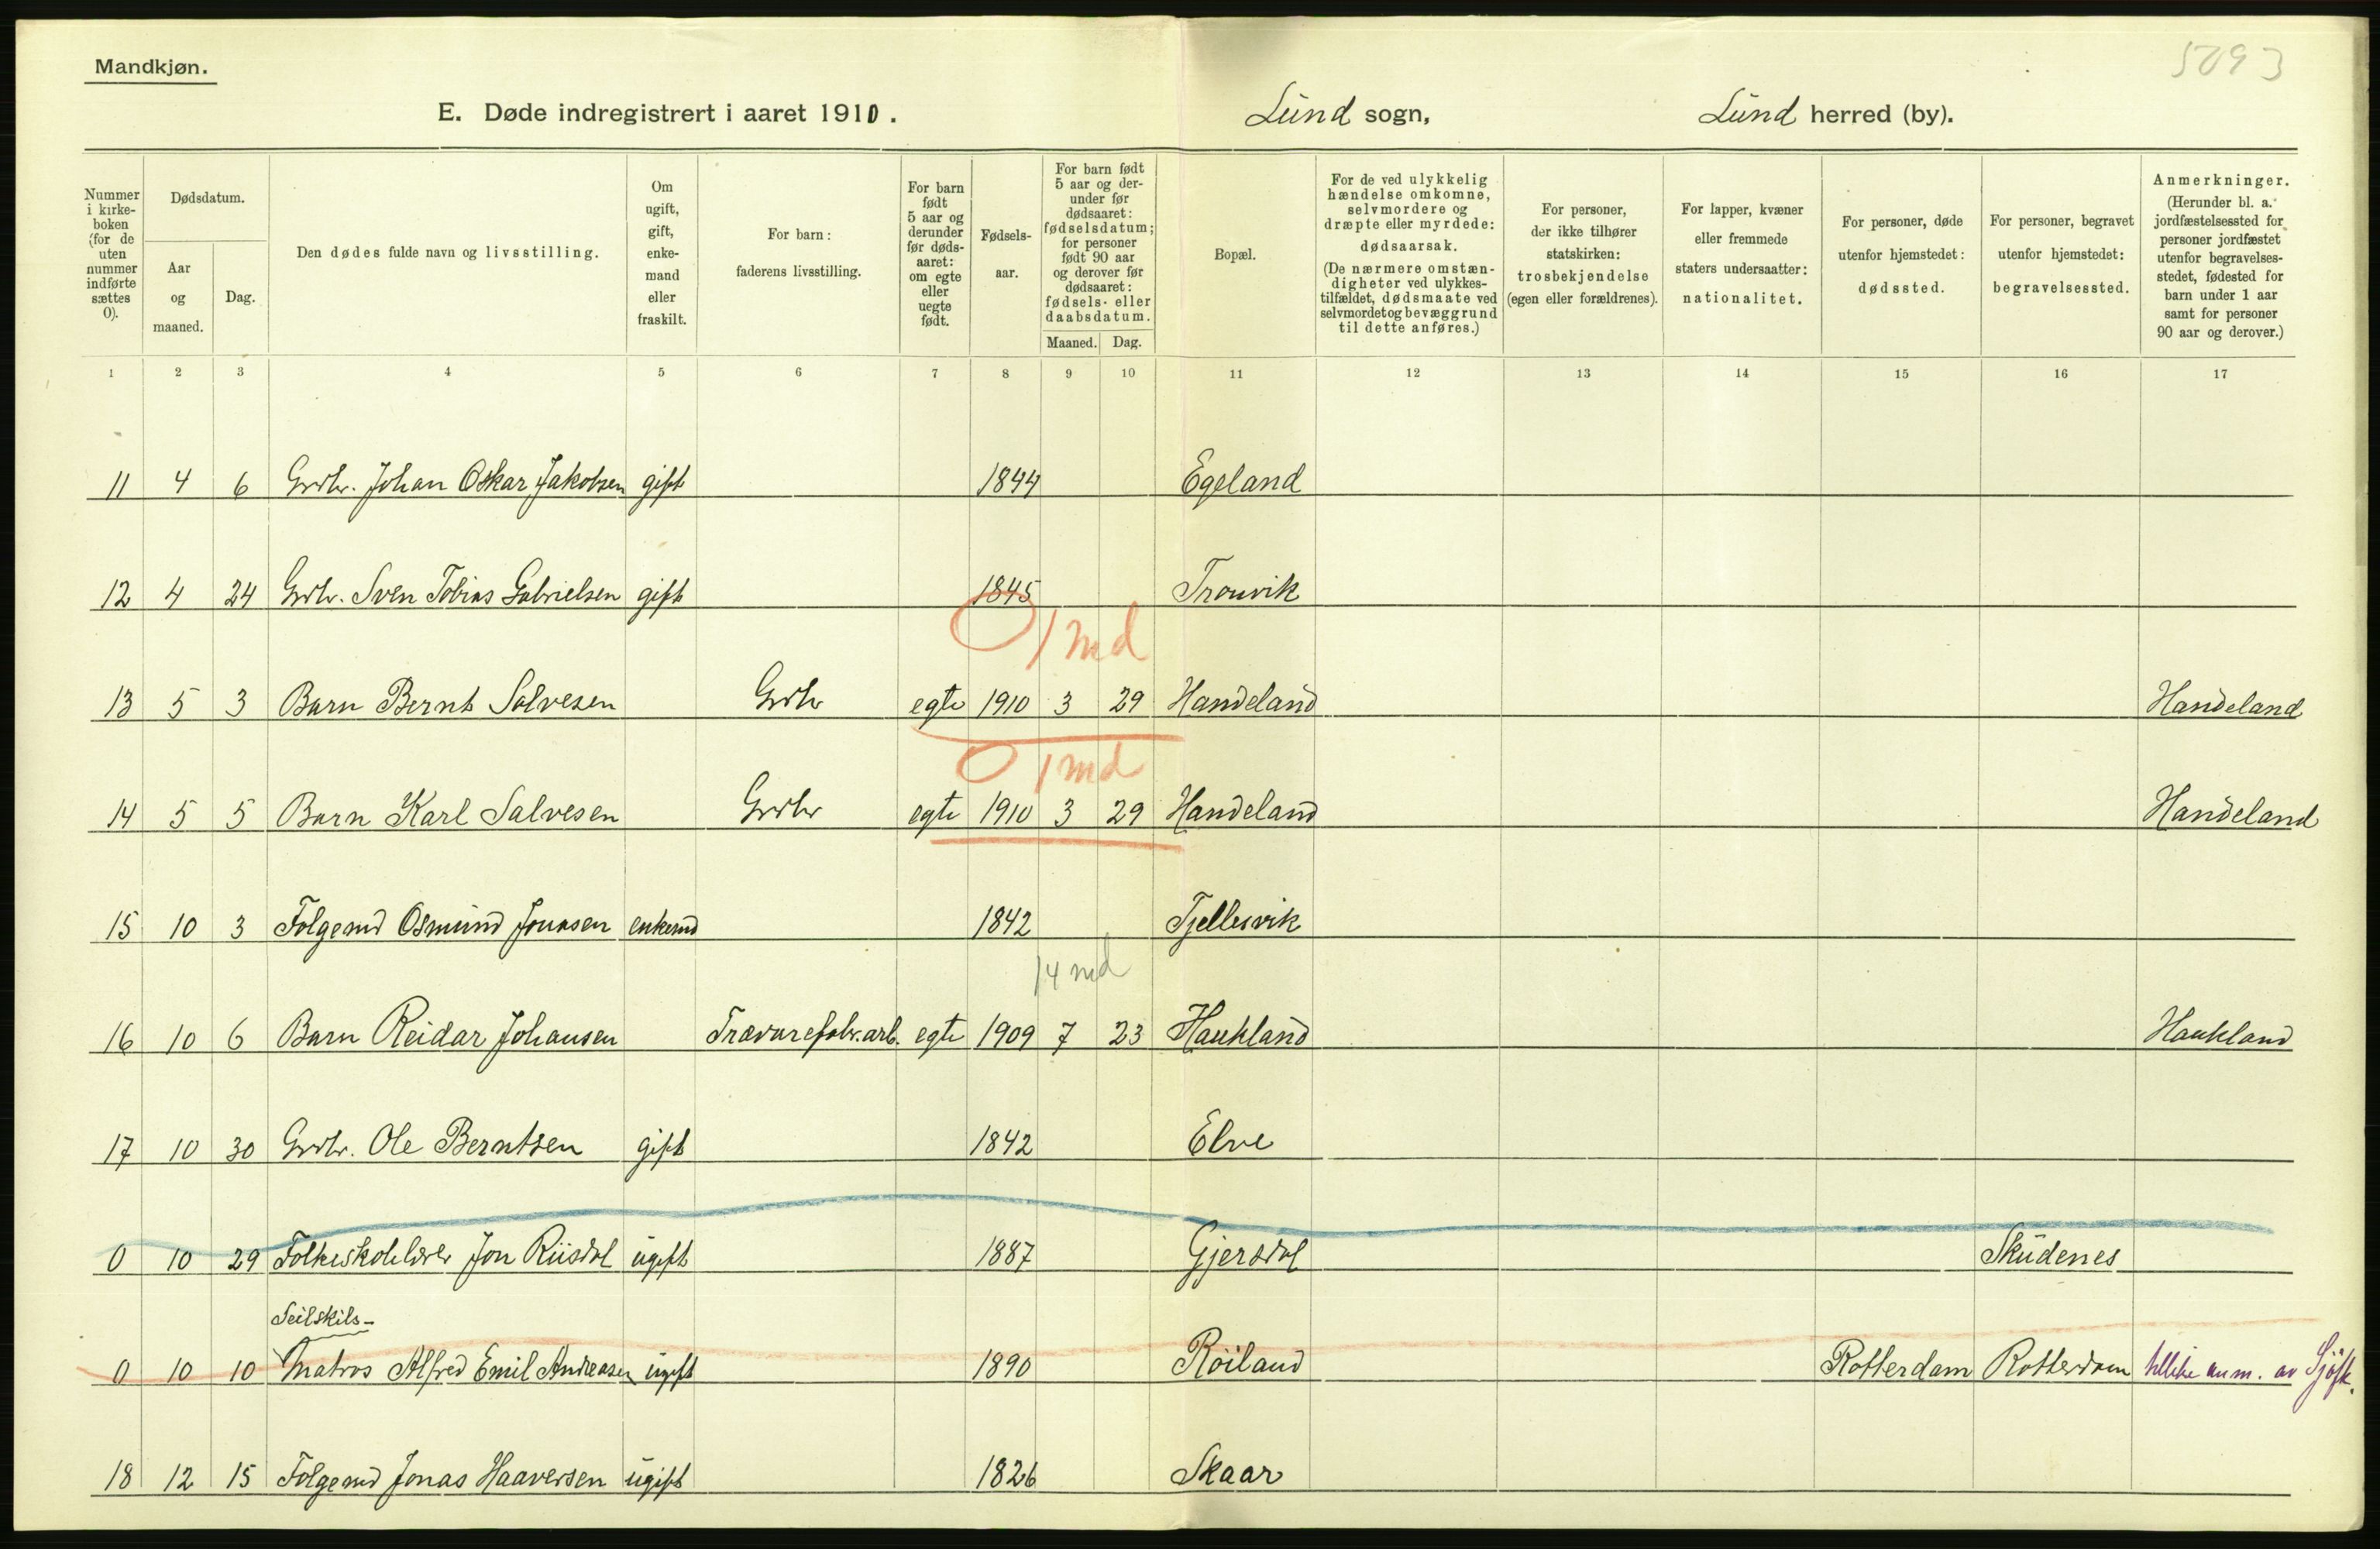 5093
Mandkjøn.
E. Døde indregistrert i aaret 1910.
Lund sogn,
Lund herred (by).
Nummer i kirke- boken (for de uten nummer indførte sættes 0).
Dødsdatum.
Aar og maaned.
Dag.
Den dødes fulde navn og livsstilling.
Om ugift, gift, enke- mand eller fraskilt.
For barn: faderens livsstilling.
For barn født 5 aar og derunder før døds- aaret: om egte eller uegte født.
Fødsels- aar.
For barn født 5 aar og der- under før dødsaaret: fødselsdatum; for personer født 90 aar og derover før dødsaaret: fødsels- eller daabsdatum.
Maaned.
Dag.
Bopæl.
For de ved ulykkelig hændelse omkomne, selvmordere og dræpte eller myrdede: dødsaarsak. (De nærmere omstæn- digheter ved ulykkes- tilfældet, dødsmaate ved selvmordet og bevæggrund til dette anføres.)
For personer, der ikke tilhører statskirken: trosbekjendelse (egen eller forældrenes).
For lapper, kvæner eller fremmede staters undersaatter: nationalitet.
For personer, døde utenfor hjemstedet: dødssted.
For personer, begravet utenfor hjemstedet: begravelsessted.
Anmerkninger. (Herunder bl. a. jordfæstelsessted for personer jordfæstet utenfor begravelses- stedet, fødested for barn under 1 aar samt for personer 90 aar og derover.)
1 2 3 4 5 6 7 8 9 10 11 12 13 14 15 16 17
11 4 6 Grdbr. Johan Oskar Jakobsen gift 1844 Egeland
12 4 24 Grdbr. Sven Tobias Gabrielsen gift 1845 Trouvik
0 1 md
13 5 3 Barn Bernt Salvesen Grdbr egte 1910 3 29 Handeland Handeland
0 1 md
14 5 5 Barn Karl Salvesen Grdbr egte 1910 3 29 Handeland Handeland
15 10 3 Folgemd Osmund Jonasen enkemd 1842 Tjellesvik
14 md
16 10 6 Barn Reidar Johansen Trævarefabr.arb. egte 1909 7 23 Haukland Haukland
17 10 30 Grdbr. Ole Berntsen gift 1842 Elve
0 10 29 Folkeskolelærer Jon Riisdal ugift 1887 Gjersdal Skudenes
Seilskils-
0 10 10 Matros Alfred Emil Andreasen ugift 1890 Röiland Rotterdam Rotterdam tillike anm. av Sjöfk.
18 12 15 Folgemd Jonas Haaversen ugift 1826 Skaar